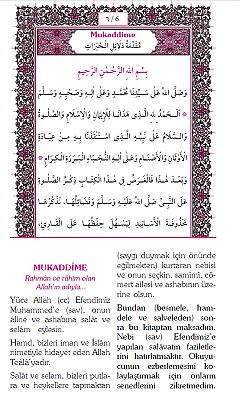 ٦ / 6
Mukaddime
مُقَدِّمَةُ دَلَائِلِ الْخَيْرَاتِ
بِسْمِ اللهِ الرَّحْمٰنِ الرَّحِيمِ
وَصَلَّى اللهُ عَلَى سَيِّدِنَا مُحَمَّدٍ وَعَلَى آلِهِ وَصَحْبِهِ وَسَلَّمَ
اَلْحَمْدُ لِلهِ الَّذِى هَدَانَا لِلْاِيمَانِ وَالْاِسْلَامِ وَالصَّلَوةُ
وَالسَّلَامُ عَلَى نَبِيِّهِ الَّذِى اسْتَنْقَذَنَا بِهِ مِنْ عِبَادَةِ
الْاَوْثَانِ وَالْاَصْنَامِ وَعَلَى آلِهِ النُّجَبَاءِ الْبَرَرَةِ الْكِرَامِ
وَبَعْدَ هٰذَا فَالْغَرَضُ فِى هٰذَا الْكِتَابِ ذِكْرُ الصَّلَوةِ
عَلَى النَّبِىِّ صَلَّى اللهُ عَلَيْهِ وَسَلَّمَ وَفَضَائِلِهَا، نَذْكُرُهَا
مَحْذُوفَةَ الْاَسَانِيدِ لِيَسْهُلَ حِفْظُهَا عَلَى الْقَارِئِ،
MUKADDİME
Rahmân ve râhim olan
Allah'ın adıyla..
Yüce Allah (cc) Efendimiz
Muhammed'e (sav), onun
âline ve ashabına salât ve
selâm eylesin.
Hamd, bizleri iman ve İslâm
nimetiyle hidayet eden Allah
Teâlâ'yadır.
Salât ve selam, bizleri putla-
ra ve heykellere tapmaktan
(saygı duymak için önünde
eğilmekten) kurtaran nebisi
ve onun seçkin, samimi, cö-
mert ailesi ve ashabının üze-
rine olsun.
Bundan (besmele, ham-
dele ve salveleden) son-
ra bu kitaptan maksadım,
Nebi (sav) Efendimiz'e
yapılan salâvatın faziletle-
rini hatırlatmaktır. Okuyu-
cunun ezberlemesini ko-
laylaştırmak için onların
senedlerini zikretmedim.